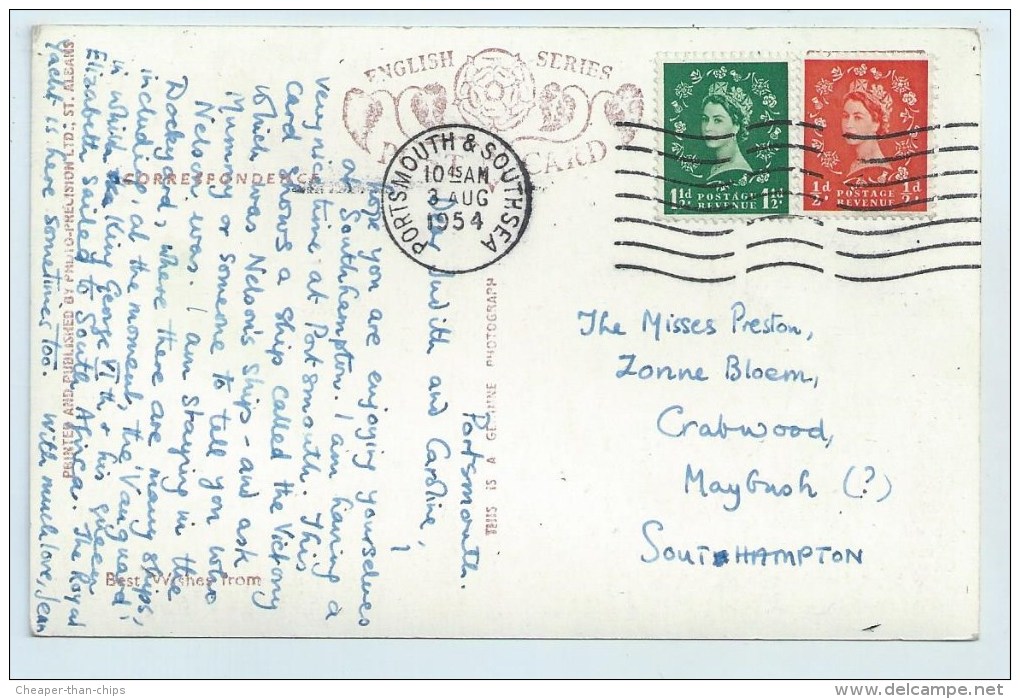 ENGLISH SERIES
POST CARD
PORTSMOUTH & SOUTHSEA
10 45 AM
3 AUG
1954
1½d 1½d
POSTAGE
REVENUE
½d ½d
POSTAGE
REVENUE
CORRESPONDENCE
PRINTED AND PUBLISHED BY PHOTO-PRECISION LTD., ST. ALBANS
THIS IS A GENUINE PHOTOGRAPH
Best Wishes from
Portsmouth.
Dear Judith and Caroline,
I hope you are enjoying yourselves
at Southampton. I am having a
very nice time at Portsmouth. This
card shows a ship called the Victory
which was Nelson's ships - and ask
Mummy or someone to tell you who
Nelson was. I am staying in the
Dockyard, where there are many ships,
including, at the moment, the 'Vanguard',
in which the King George VIth & his queen
Elizabeth sailed to South Africa. The Royal
Yacht is here sometimes too. With much love, Jean
The Misses Preston,
Zonne Bloem,
Crabwood,
Maybush (?)
SOUTHAMPTON
Cheaper-than-chips
delcampe.net